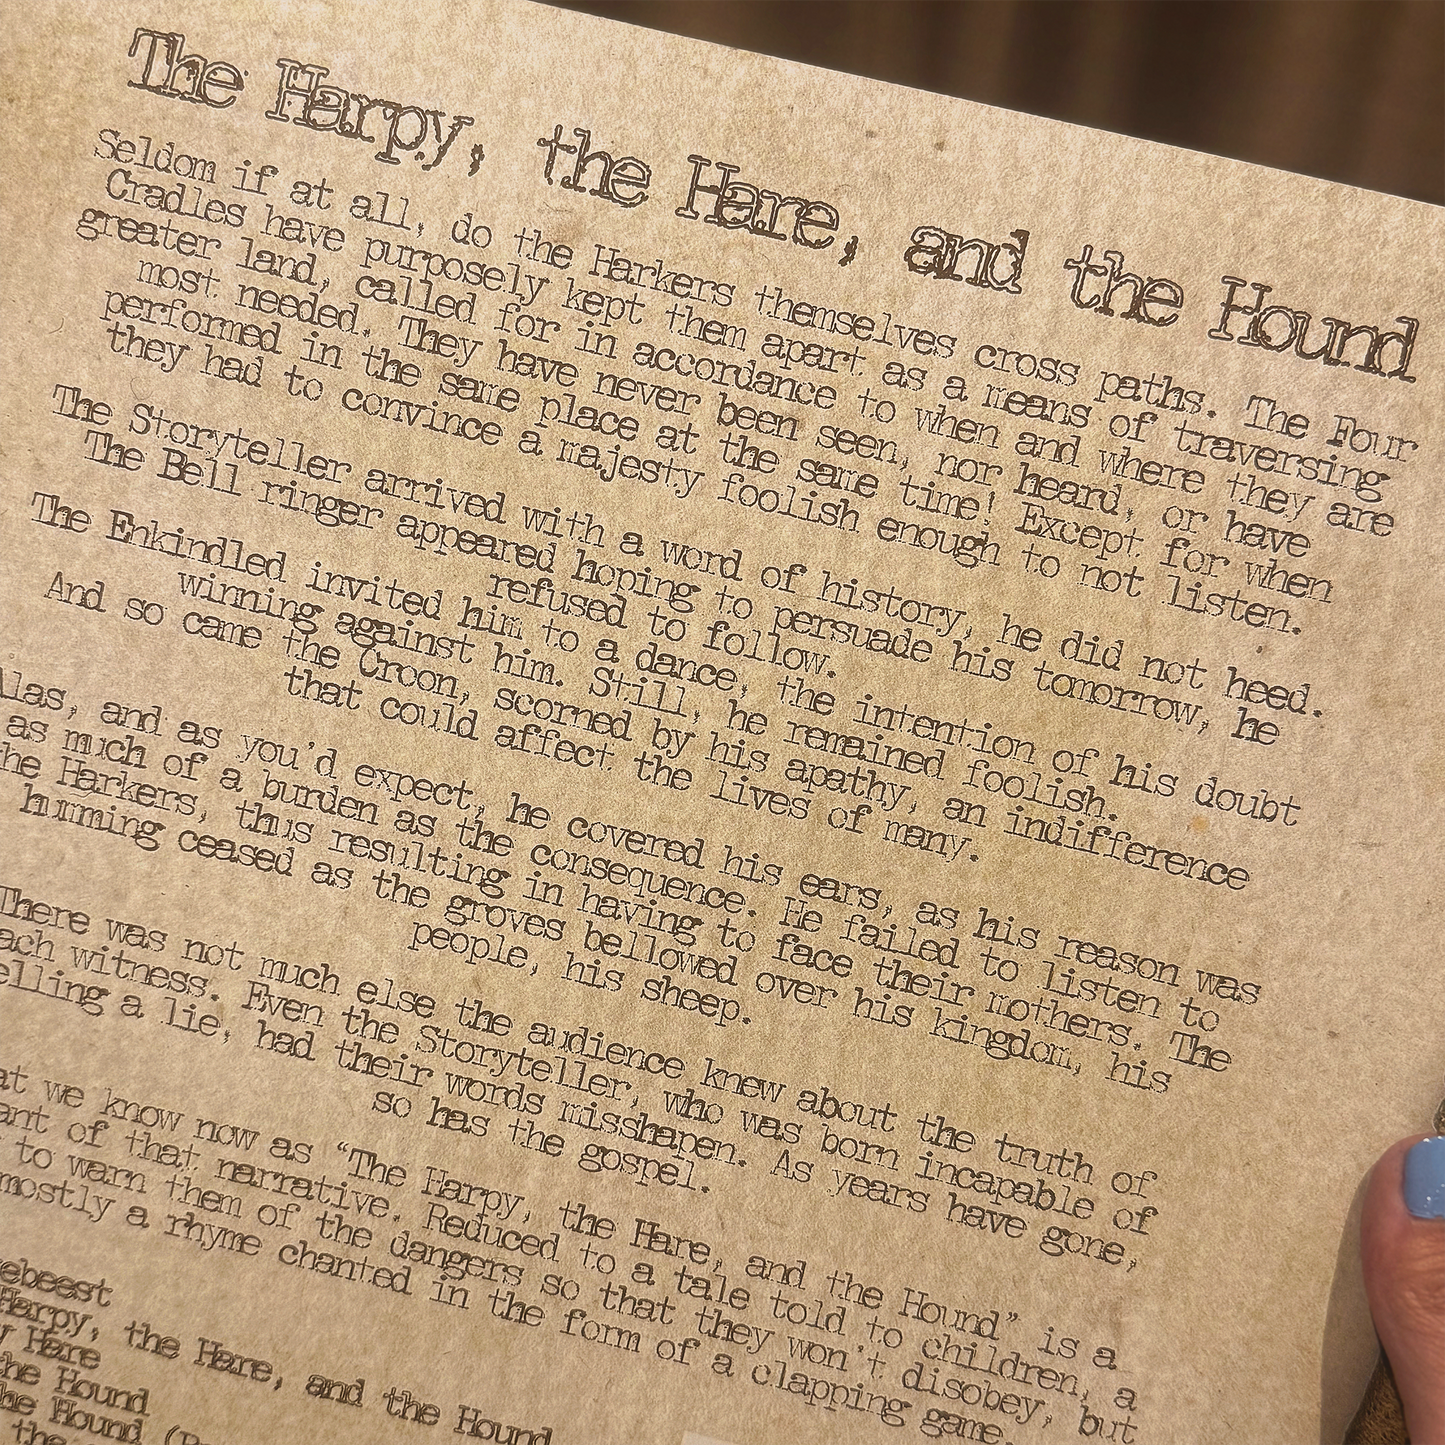 The Harpy, the Hare, and the Hound
Seldom if at all, do the Harkers themselves cross paths. The Four
Cradles have purposely kept them apart as a means of traversing
greater land, called for in accordance to when and where they are
most needed. They have never been seen, nor heard, or have
performed in the same place at the same time! Except for when
they had to convince a majesty foolish enough to not listen.
The Storyteller arrived with a word of history, he did not heed.
The Bell ringer appeared hoping to persuade his tomorrow, he
refused to follow.
The Enkindled invited him to a dance, the intention of his doubt
winning against him. Still, he remained foolish.
And so came the Croon, scorned by his apathy, an indifference
that could affect the lives of many.
Alas, and as you'd expect, he covered his ears, as his reason was
as much of a burden as the consequence. He failed to listen to
the Harkers, thus resulting in having to face their mothers. The
humming ceased as the groves bellowed over his kingdom, his
people, his sheep.
There was not much else the audience knew about the truth of
each witness. Even the Storyteller, who was born incapable of
telling a lie, had their words misshapen. As years have gone,
so has the gospel.
at we know now as "The Harpy, the Hare, and the Hound" is a
ant of that narrative. Reduced to a tale told to children, a
to warn them of the dangers so that they won't disobey, but
mostly a rhyme chanted in the form of a clapping game.
ebeest
Harpy, the Hare, and the Hound
y Hare
the Hound
the Hound
the